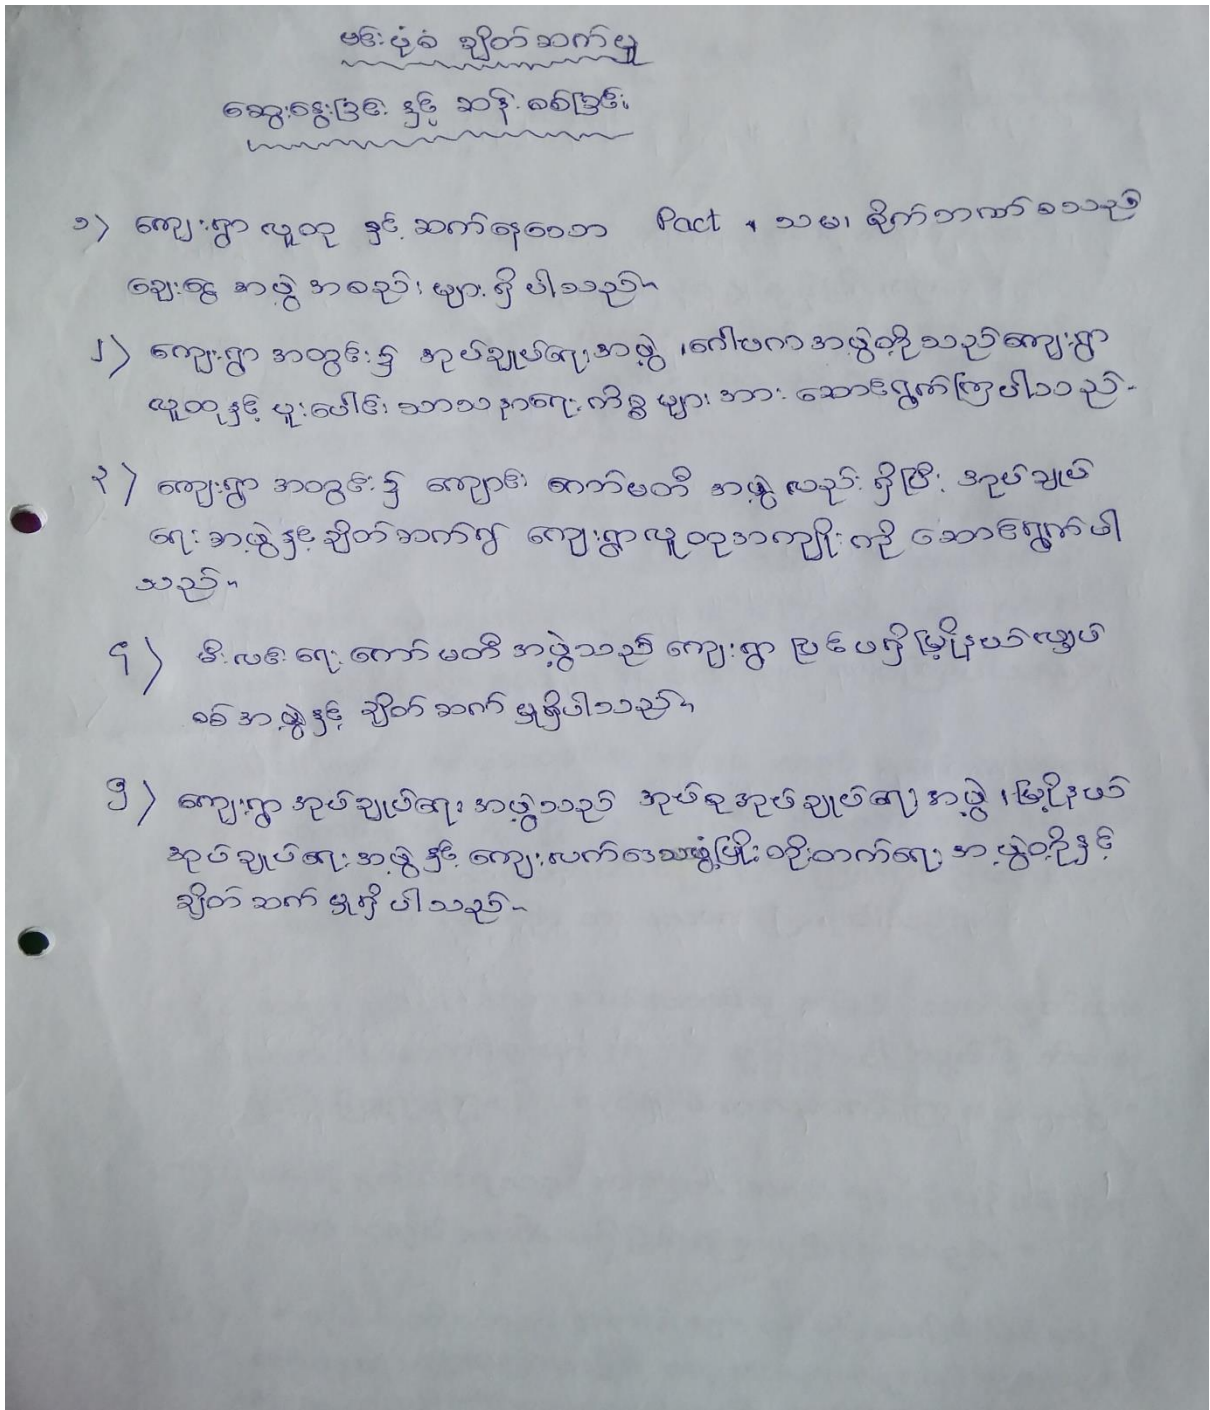 ဗင်းပုံစံ ချိတ်ဆက်မှု
ဆွေးနွေးခြင်း နှင့် ဆန်းစစ်ခြင်း
၁) ကျေးရွာ လူထု နှင့် ဆက်နေသော Pact ၊ သမ၊ စိုက်ဘဏ် စသည့်
ချေးငွေ အဖွဲ့အစည်းများ ရှိပါသည်။
၂) ကျေးရွာ အတွင်း၌ အုပ်ချုပ်ရေးအဖွဲ့ ၊ ဂေါပကအဖွဲ့တို့သည် ကျေးရွာ
လူထုနှင့် ပူးပေါင်း သာသနာရေး ကိစ္စများအား ဆောင်ရွက်ကြပါသည်။
၃) ကျေးရွာ အတွင်း၌ ကျောင်း ကော်မတီ အဖွဲ့ လည်း ရှိပြီး အုပ်ချုပ်
ရေး အဖွဲ့နှင့် ချိတ်ဆက်၍ ကျေးရွာလူထုအကျိုးကို ဆောင်ရွက်ပါ
သည်။
၄) မီးလင်းရေး ကော်မတီ အဖွဲ့သည် ကျေးရွာ ပြင်ပရှိ မြို့နယ်လျှပ်
စစ်အဖွဲ့နှင့် ချိတ်ဆက်မှုရှိပါသည်။
၅) ကျေးရွာအုပ်ချုပ်ရေး အဖွဲ့သည် အုပ်စုအုပ်ချုပ်ရေး အဖွဲ့ ၊ မြို့နယ်
အုပ်ချုပ်ရေး အဖွဲ့ နှင့် ကျေးလက်ဒေသဖွံ့ဖြိုးတိုးတက်ရေး အဖွဲ့တို့နှင့်
ချိတ်ဆက်မှုရှိပါသည်။